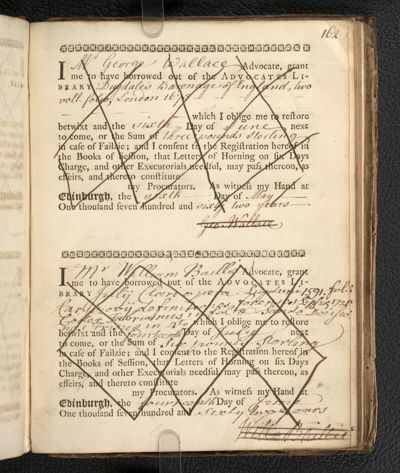 162
I Mr George Wallace Advocate, grant
me to have borrowed out of the ADVOCATES LI-
BRARY Dugdale's Baronage of England, two
voll folio, London 167
which I oblige me to restore
betwixt and the sixth Day of June next
to come, or the Sum of three pounds Sterling
in case of Failzie; and I consent to the Registration hereof in
the Books of Session, that Letters of Horning on six Days
Charge, and other Executorials needful, may pass thereon, as
effeirs, and thereto constitute
my Procurators. As witness my Hand at
Edinburgh, the sixth Day of May
One thousand seven hundred and sixty two years
Geo. Wallace
I Mr William Baillie Advocate, grant
me to have borrowed out of the ADVOCATES LI-
BRARY Julij Clari opera 1591. folo
which I oblige me to restore
betwixt and the Day of next
to come, or the Sum of Six pounds Sterling
in case of Failzie; and I consent to the Registration hereof in
the Books of Session, that Letters of Horning on six Days
Charge, and other Executorials needful may pass thereon, as
effeirs, and thereto constitute
my Procurators. As witness my Hand at
Edinburgh, the fourteenth Day of
One thousand seven hundred and sixty two years
Will: Baillie